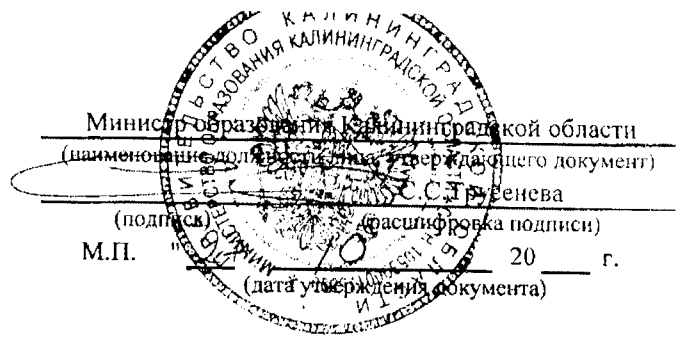 Министр образования Калининградской области
(наименование должности лица, утверждающего документ)
С.С.Трусенева
(подпись) (расшифровка подписи)
М.П. " 20 г.
(дата утверждения документа)
МИНИСТЕРСТВО ОБРАЗОВАНИЯ КАЛИНИНГРАДСКОЙ